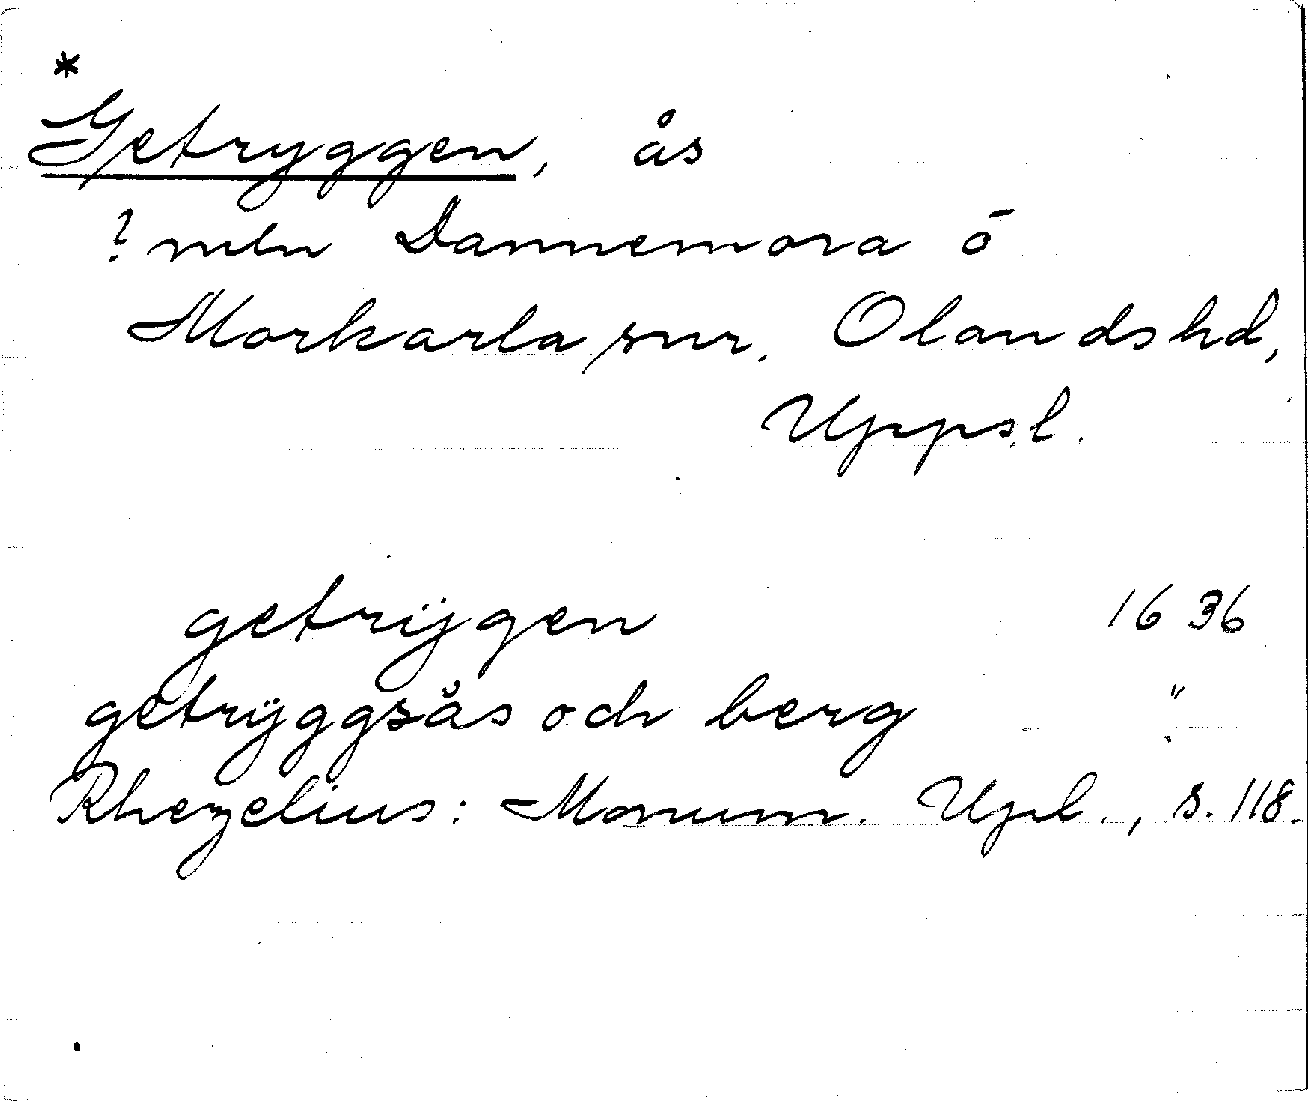 *
Getryggen, ås
? mln Dannemora o
Morkarla snr. Olands hd,
Uppsl.
getrÿgen 1636
getrÿggsås och berg "
Rhezelius: Monum. Upl., s. 118.